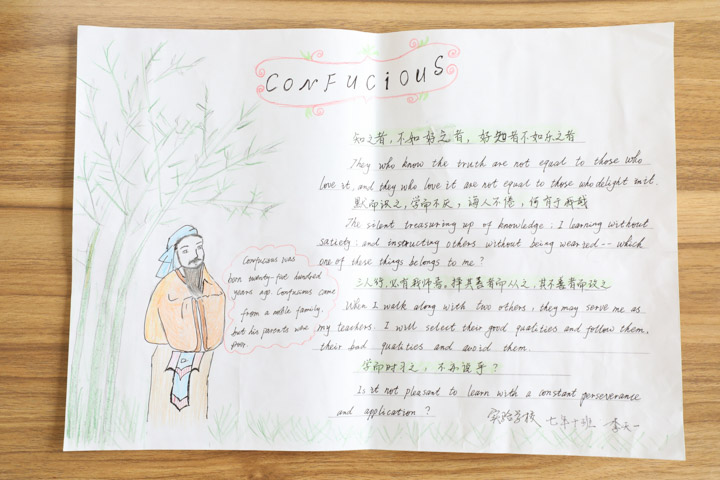 CONFUCIOUS
知之者,不如好之者,好知者不如乐之者
They who know the truth are not equal to those who
love it, and they who love it are not equal to those who delight in it.
默而识之,学而不厌,诲人不倦,何有于我哉
The silent treasuring up of knowledge; I learning without
satiety; and instructing others without being wearied -- which
one of these things belongs to me?
三人行,必有我师焉。择其善者而从之,其不善者而改之
When I walk along with two others, they may serve me as
my teachers. I will select their good qualities and follow them,
their bad qualities and avoid them.
学而时习之,不亦说乎?
Is it not pleasant to learn with a constant perseverance
and application?
Confucius was
born twenty-five hundred
years ago. Confucius came
from a noble family,
but his parents were
poor.
实验学校 七年十班 李天一